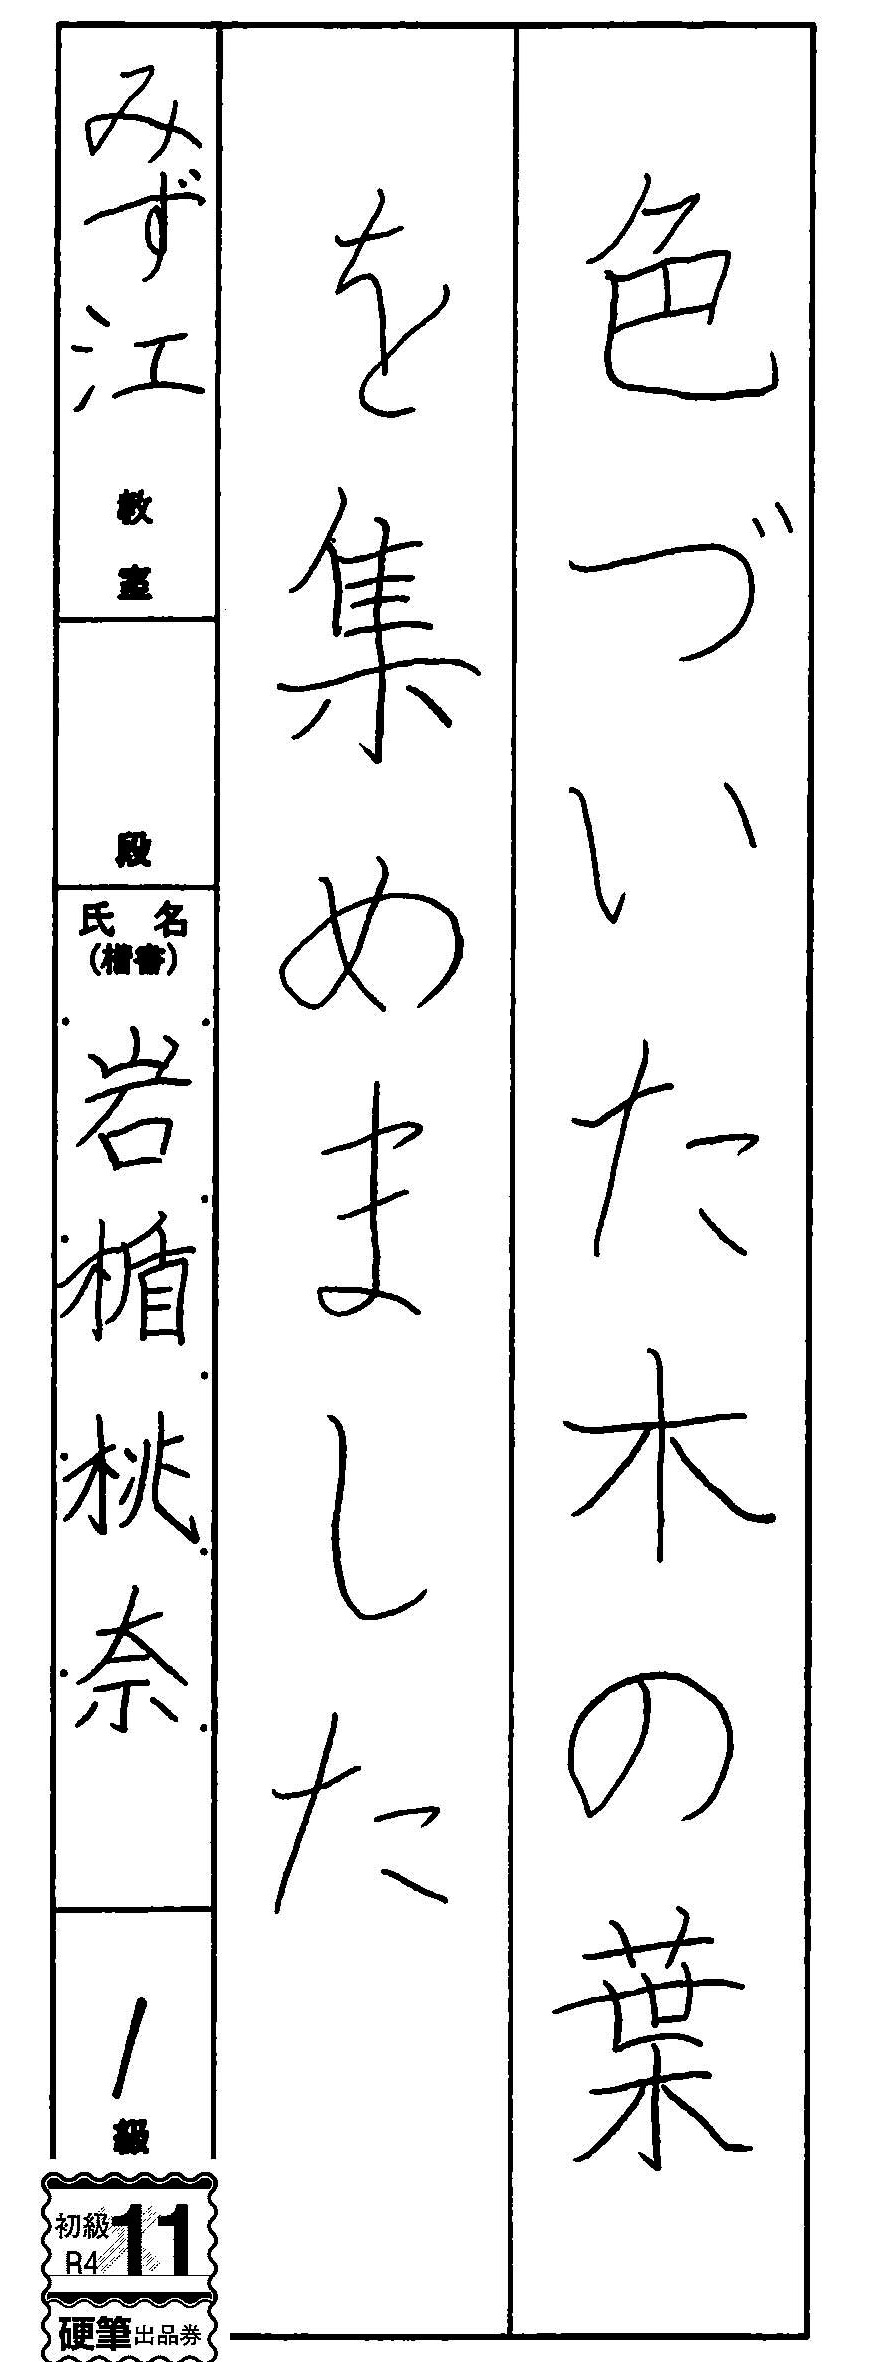 色づいた木の葉
を集めました
みず江
教室
段
氏名
(楷書)
岩楯桃奈
1
級
初級
R4
11
硬筆出品券